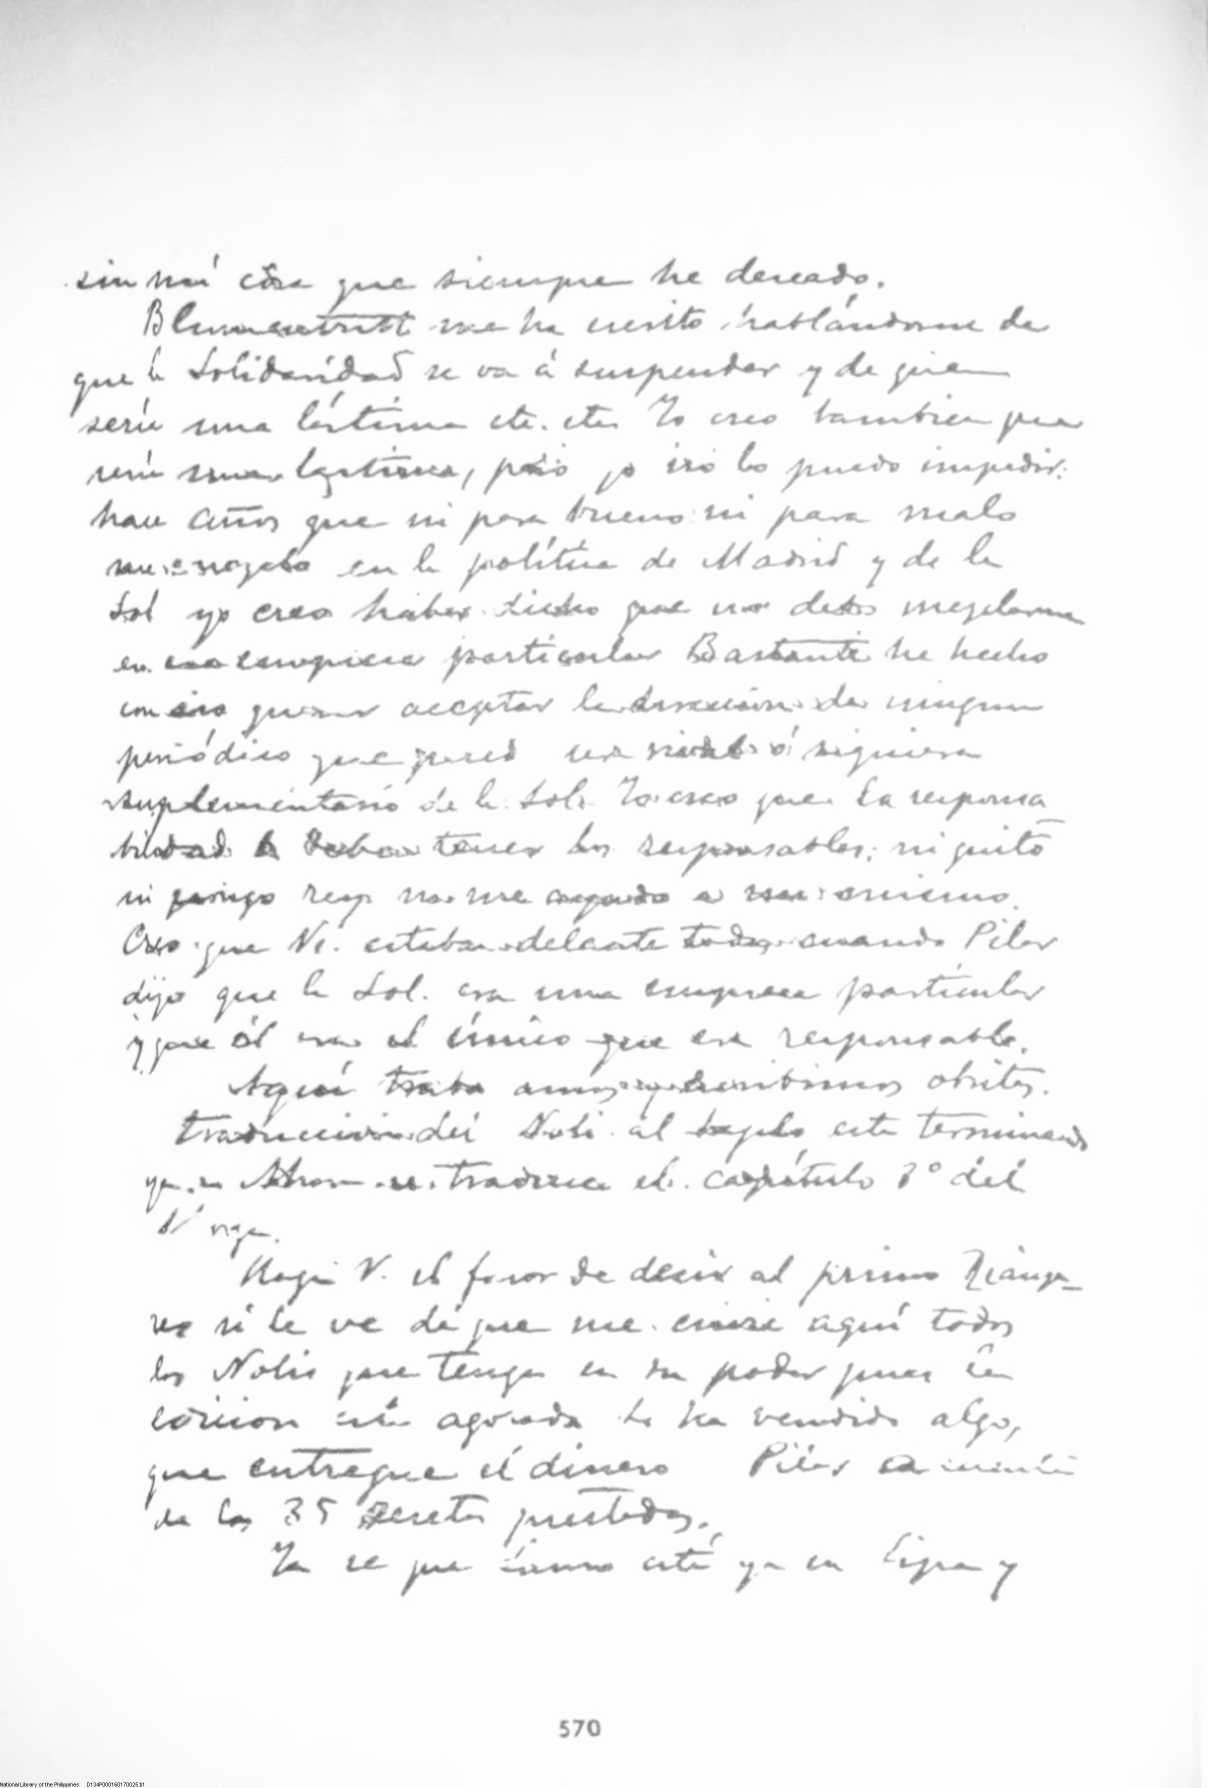 sin mí cosa que siempre he deseado.
Blumentritt me ha escrito hablándome de
que la Solidaridad se va á suspender y de que
sería una lástima etc. etc. Yo creo tambien que
sería una lastima, pero yo no lo puedo impedir:
hace años que ni para bueno ni para malo
me mezclo en la política de Madrid y de la
Sol yo creo haber dicho que no debo mezclarme
en una empresa particular Bastante he hecho
con no querer aceptar la direccion de ningun
periódico que pueda ser rival ó siquiera
suplementario de la Sol. Yo creo que la responsa
bilidad la deben tener los responsables; ni quito
ni pongo rey no me a mismo.
Creo que V. estaba delante cuando Pilar
dijo que la Sol. era una empresa particular
y que él era el único que era responsable.
Aquí
traduccion del Noli al tagalo está terminando
ya se traduce el capítulo 3º del
Haga V. el favor de decir al primo
si le ve de que me envie aquí todos
los Nolis que tenga en su poder pues la
edicion está agotada Si ha vendido algo,
que entregue el dinero Pilar
de las 35 pesetas prestadas.
Ya se que está ya en y
570
National Library of the Philippines